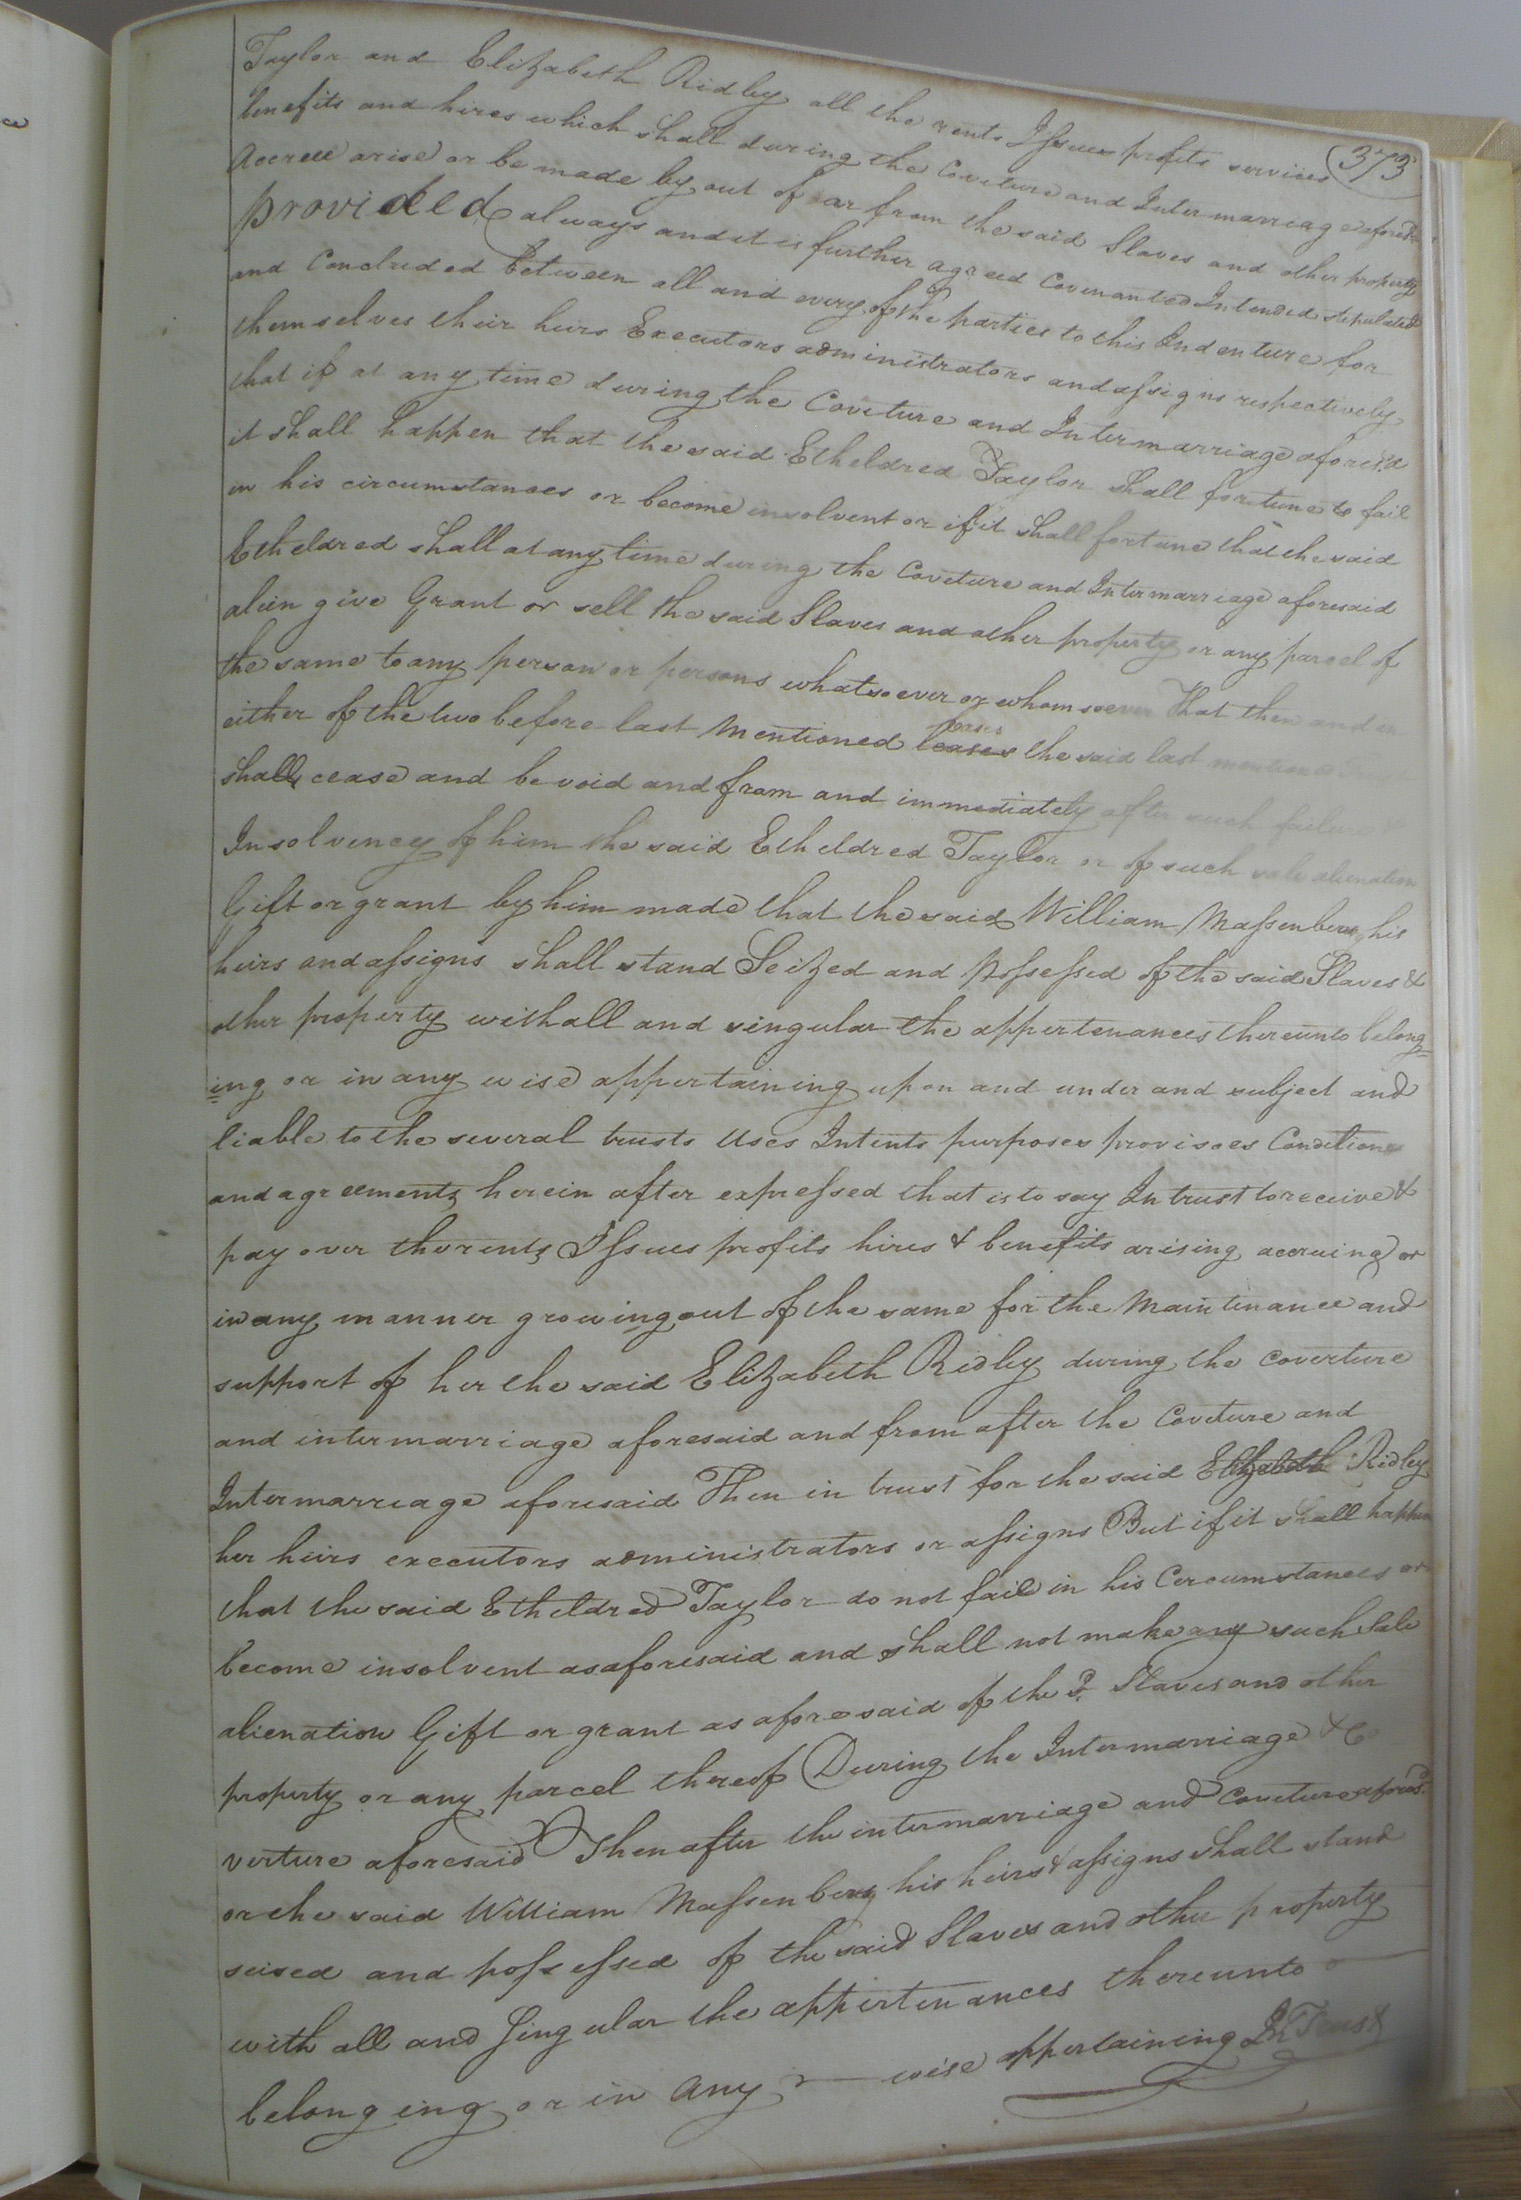 373
Taylor and Elizabeth Ridley all the rents Issues profits services
benefits and hires which shall during the Coveture and Intermarriage afores.d
Accrue arise or be made by out of or from the said Slaves and other property
provided always and it is further agreed Covenanted Intended stipulated
and Concluded between all and every of the parties to this Indenture for
themselves their heirs Executors administrators and assigns respectively
that if at any time during the Coveture and Intermarriage aforesd
it shall happen that the said Etheldred Taylor shall fortune to fail
in his circumstances or become insolvent or if it shall fortune that the said
Etheldred shall at any time during the Coveture and Intermarriage aforesaid
alien give Grant or sell the said Slaves and other property or any parcel of
the same to any person or persons whatsoever or whomsoever That then and in
either of the two before last Mentioned cases the said last mentioned
shall cease and be void and from and immediately after such failure
Insolvency of him the said Etheldred Taylor or of such sale alienation
Gift or grant by him made that the said William Massenburg his
heirs and assigns shall stand Seized and possessed of the said Slaves &
other property withall and singular the appertenances thereunto belong=
=ing or in any wise appertaining upon and under and subject and
liable to the several trusts Uses Intents purposes provisoes Conditions
and agreements herein after expressed that is to say In trust to receive &
pay over the rents Issues profits hires & benefits arising accruing or
in any manner growing out of the same for the Maintinance and
support of her the said Elizabeth Ridley during the Coverture
and intermarriage aforesaid and from after the Coveture and
Intermarriage aforesaid Then in trust for the said Elizabeth Ridley
her heirs executors administrators or assigns But if it shall happen
that the said Etheldred Taylor do not fail in his Circumstances or
become insolvent as aforesaid and shall not make any such Sale
alienation Gift or grant as aforesaid of the sd. Slaves and other
property or any parcel thereof During the Intermarriage & Co
verture aforesaid Then after the intermarriage and Coveture aforesd.
or the said William Massenburg his heirs & assigns shall stand
seised and possessed of the said Slaves and other property
with all and Singular the appertinances thereunto
belonging or in any wise appertaining In Trust